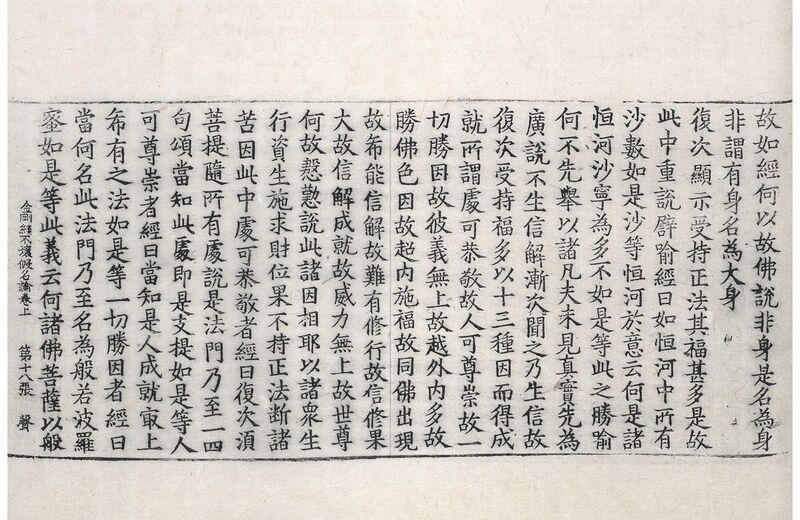 故如經何以故佛說非身是名為身
非謂有身名為大身
復次顯示受持正法其福甚多是故
此中重說譬喻經曰如恒河中所有
沙數如是沙等恒河於意云何是諸
恒河沙寧為多不如是等此之勝喻
何不先舉以諸凡夫未見真實先為
廣說不生信解漸次聞之乃生信故
復次受持福多以十三種因而得成
就所謂處可恭敬故人可尊崇故一
切勝因故彼義無上故越外內多故
勝佛色因故超內施福故同佛出現
故希能信解故難有修行故信修果
大故信解成就故威力無上故世尊
何故慇懃說此諸因相耶以諸衆生
行資生施求財位果不持正法断諸
苦因此中處可恭敬者經曰復次湏
菩提隨所有處說是法門乃至一四
句頌當知此處即是支提如是等人
可尊崇者經曰當知是人成就㝡上
希有之法如是等一切勝因者經曰
當何名此法門乃至名為般若波羅
蜜如是等此義云何諸佛菩薩以般
金剛經不壞假名論卷上 第十八張 聲